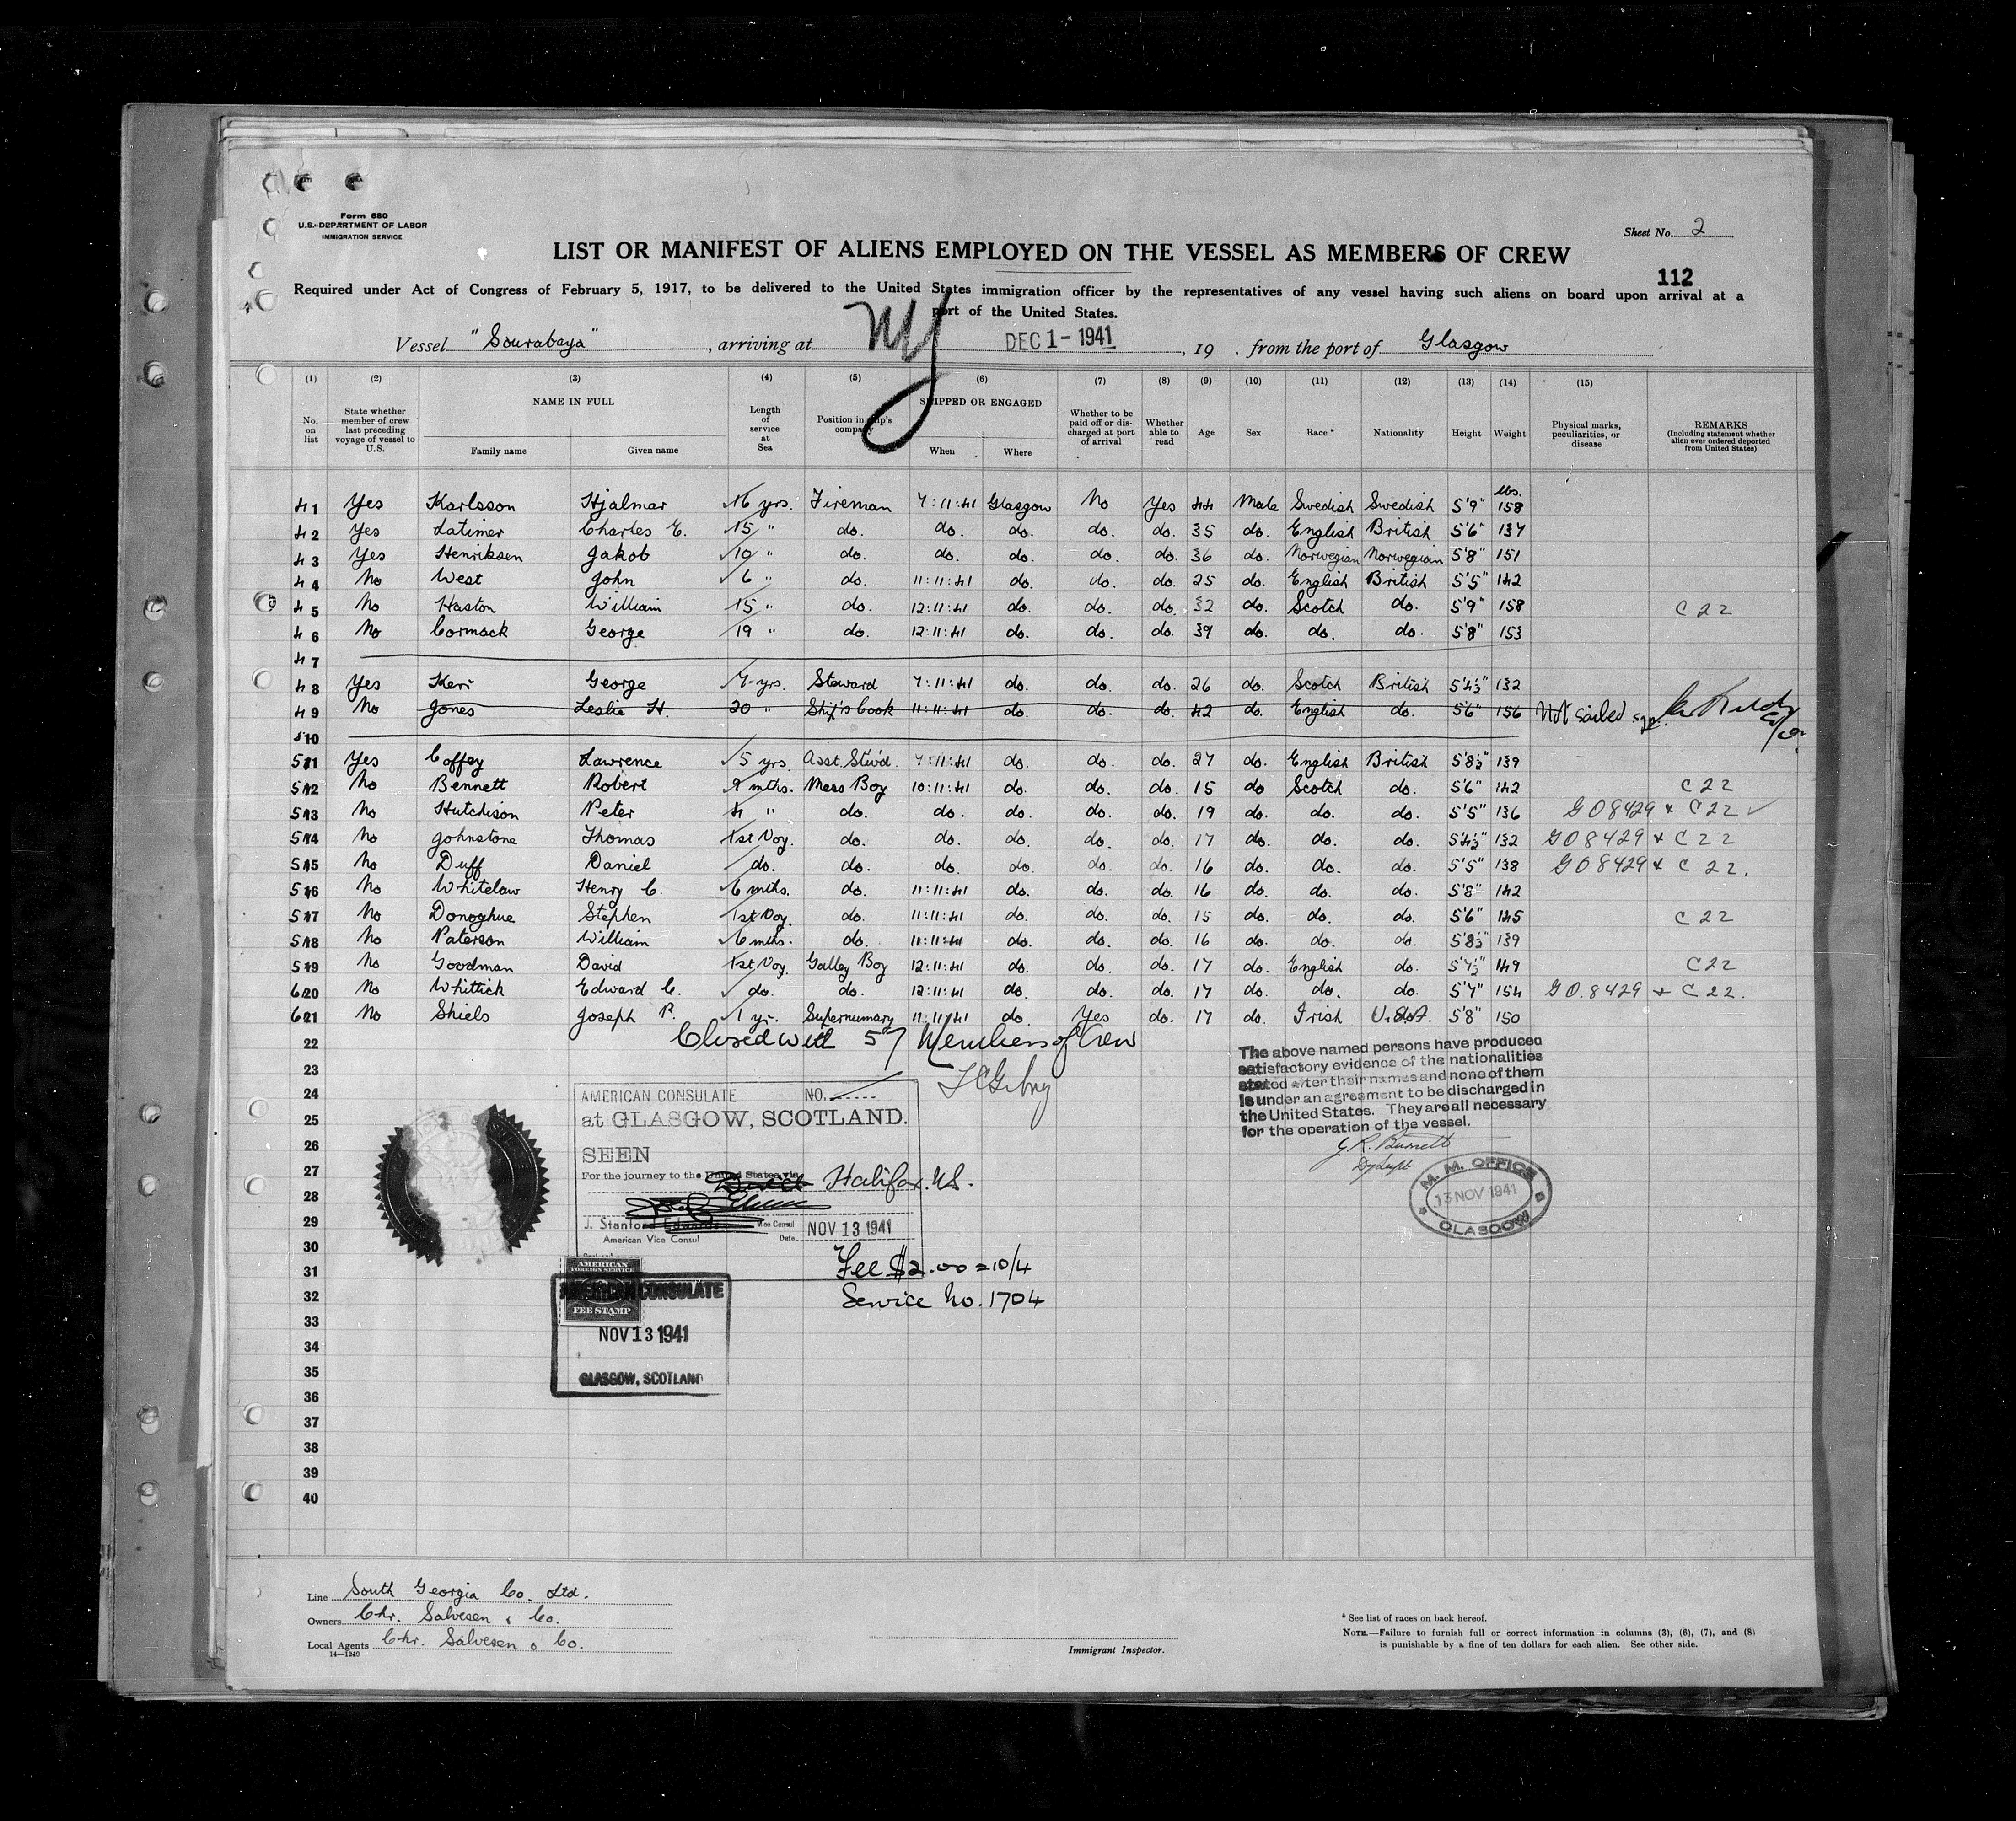 Form 680
U.S. DEPARTMENT OF LABOR
IMMIGRATION SERVICE
Sheet No. 2
LIST OR MANIFEST OF ALIENS EMPLOYED ON THE VESSEL AS MEMBERS OF CREW
112
Required under Act of Congress of February 5, 1917, to be delivered to the United States immigration officer by the representatives of any vessel having such aliens on board upon arrival at a
port of the United States.
Vessel "Sourabaya", arriving at NY DEC 1 - 1941, 19 . from the port of Glasgow
(1) (2) (3) (4) (5) (6) (7) (8) (9) (10) (11) (12) (13) (14) (15)
No. on list State whether member of crew last preceding voyage of vessel to U.S. NAME IN FULL Family name Given name Length of service at Sea Position in ship's company SHIPPED OR ENGAGED When Where Whether to be paid off or discharged at port of arrival Whether able to read Age Sex Race * Nationality Height Weight Physical marks, peculiarities, or disease REMARKS (Including statement whether alien ever ordered deported from United States)
lbs.
41 Yes Karlsson Hjalmar 16 yrs. Fireman 7:11:41 Glasgow No Yes 44 Male Swedish Swedish 5'9" 158
42 Yes Latimer Charles E. 15 " do. do. do. do. do. 35 do. English British 5'6" 137
43 Yes Henriksen Jakob 10 " do. do. do. do. do. 36 do. Norwegian Norwegian 5'8" 151
44 No West John 6 " do. 11:11:41 do. do. do. 25 do. English British 5'5" 142
45 No Haston William 15 " do. 12:11:41 do. do. do. 32 do. Scotch do. 5'9" 158 C 22
46 No Cormack George 19 " do. 12:11:41 do. do. do. 39 do. do. do. 5'8" 153
47
48 Yes Kerr George 7 yrs. Steward 7:11:41 do. do. do. 26 do. Scotch British 5'4½" 132
49 No Jones Leslie H. 20 " Ship's Cook 11:11:41 do. do. do. 42 do. English do. 5'6" 156 Not sailed
510
511 Yes Coffey Lawrence 5 yrs. Asst. Stew'd. 7:11:41 do. do. do. 27 do. English British 5'8½" 139
512 No Bennett Robert 9 mths. Mess Boy 10:11:41 do. do. do. 15 do Scotch do. 5'6" 142 C 22
513 No Hutchison Peter 4 " do. do. do. do. do. 19 do. do. do. 5'5" 136 GO 8429 & C 22 ✓
514 No Johnstone Thomas 1st Voy. do. do. do. do. do. 17 do. do. do. 5'4½" 132 GO 8429 & C 22
515 No Duff Daniel do. do. do. do. do. do. 16 do. do. do. 5'5" 138 GO 8429 & C 22.
516 No Whitelaw Henry C. 6 mths. do. 11:11:41 do. do. do. 16 do. do. do. 5'8" 142
517 No Donoghue Stephen 1st Voy. do. 11:11:41 do. do. do. 15 do. do. do. 5'6" 145 C 22
518 No Paterson William 6 mths. do. 11:11:41 do. do. do. 16 do. do. do. 5'8½" 139
519 No Goodman David 1st Voy. Galley Boy 12:11:41 do. do. do. 17 do. English do. 5'7½" 149 C 22
620 No Whittick Edward C. do. do. 12:11:41 do. do. do. 17 do. do. do. 5'7" 154 GO. 8429 & C 22.
621 No Shiels Joseph P. 1 yr. Supernumary 11:11:41 do. Yes do. 17 do. Irish U.S.A. 5'8" 150
22
Closed with 57 Members of Crew
23
24
25
26
27
28
29
30
31
32
33
34
35
36
37
38
39
40
The above named persons have produced
satisfactory evidence of the nationalities
stated after their names and none of them
is under an agreement to be discharged in
the United States. They are all necessary
for the operation of the vessel.
J. R. Burnett
Dy Supt
M. M. OFFICE
13 NOV 1941
GLASGOW
AMERICAN CONSULATE NO.
at GLASGOW, SCOTLAND.
SEEN
For the journey to the United States via Halifax. NS.
J. Stanford Edwards Vice Consul
American Vice Consul Date NOV 13 1941
Fee $2.00 = 10/4
Service No. 1704
AMERICAN
FOREIGN SERVICE
FEE STAMP
AMERICAN CONSULATE
NOV 13 1941
GLASGOW, SCOTLAND
Line South Georgia Co. Ltd.
Owners Chr. Salvesen & Co.
Local Agents Chr. Salvesen & Co.
14—1240
Immigrant Inspector.
* See list of races on back hereof.
NOTE.—Failure to furnish full or correct information in columns (3), (6), (7), and (8)
is punishable by a fine of ten dollars for each alien. See other side.